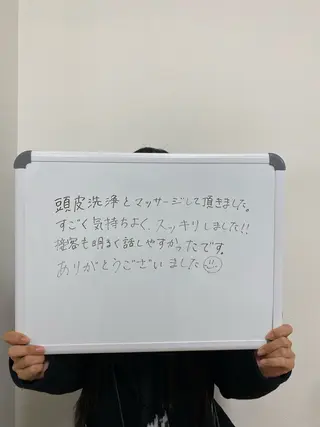 頭皮洗浄とマッサージして頂きました。
すごく気持ちよく、スッキリしました!!
接客も明るく話しやすかったです。
ありがとうございました